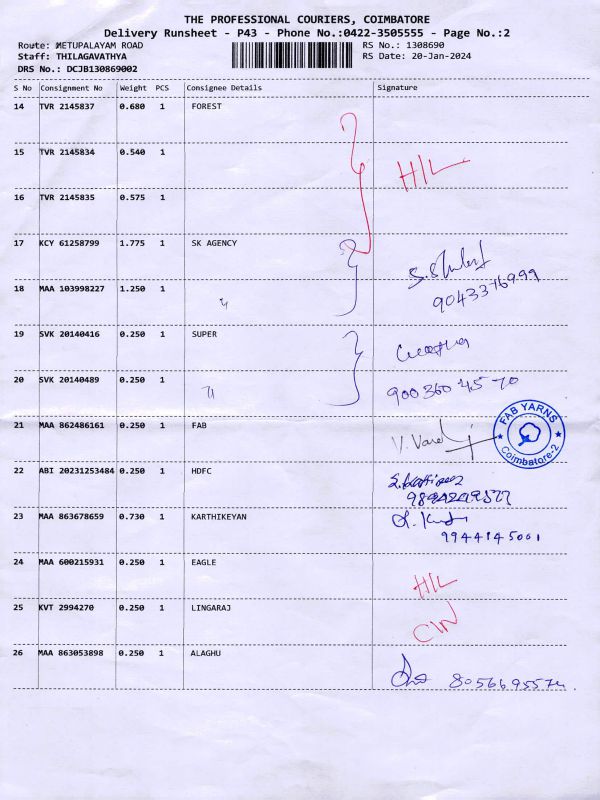 THE PROFESSIONAL COURIERS, COIMBATORE
Delivery Runsheet - P43 - Phone No.:0422-3505555 - Page No.:2
Route: METUPALAYAM ROAD RS No.: 1308690
Staff: THILAGAVATHYA RS Date: 20-Jan-2024
DRS No.: DCJB130869002
S No Consignment No Weight PCS Consignee Details Signature
14 TVR 2145837 0.680 1 FOREST
15 TVR 2145834 0.540 1 H/L
16 TVR 2145835 0.575 1
17 KCY 61258799 1.775 1 SK AGENCY
18 MAA 103998227 1.250 1 "
19 SVK 20140416 0.250 1 SUPER
20 SVK 20140489 0.250 1 " 900 360 45 70
21 MAA 862486161 0.250 1 FAB FAB YARNS Coimbatore-2
22 ABI 20231253484 0.250 1 HDFC
23 MAA 863678659 0.730 1 KARTHIKEYAN
9944145001
24 MAA 600215931 0.250 1 EAGLE H/L
25 KVT 2994270 0.250 1 LINGARAJ
26 MAA 863053898 0.250 1 ALAGHU